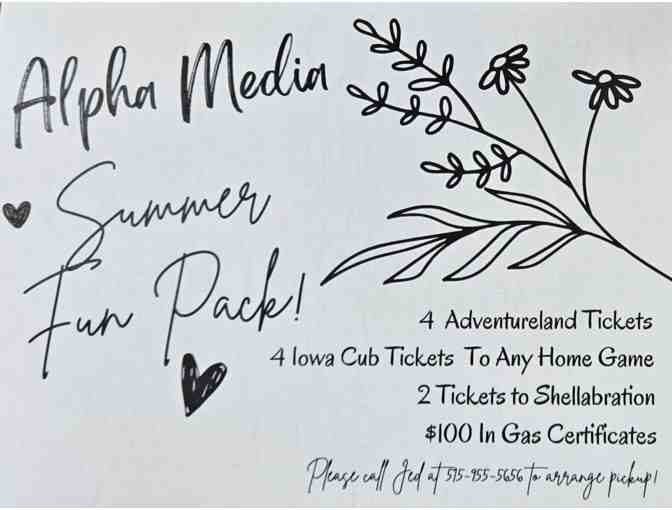 Alpha Media
Summer
Fun Pack!
4 Adventureland Tickets
4 Iowa Cub Tickets To Any Home Game
2 Tickets to Shellabration
$100 In Gas Certificates
Please call Jed at 515-955-5656 to arrange pickup!